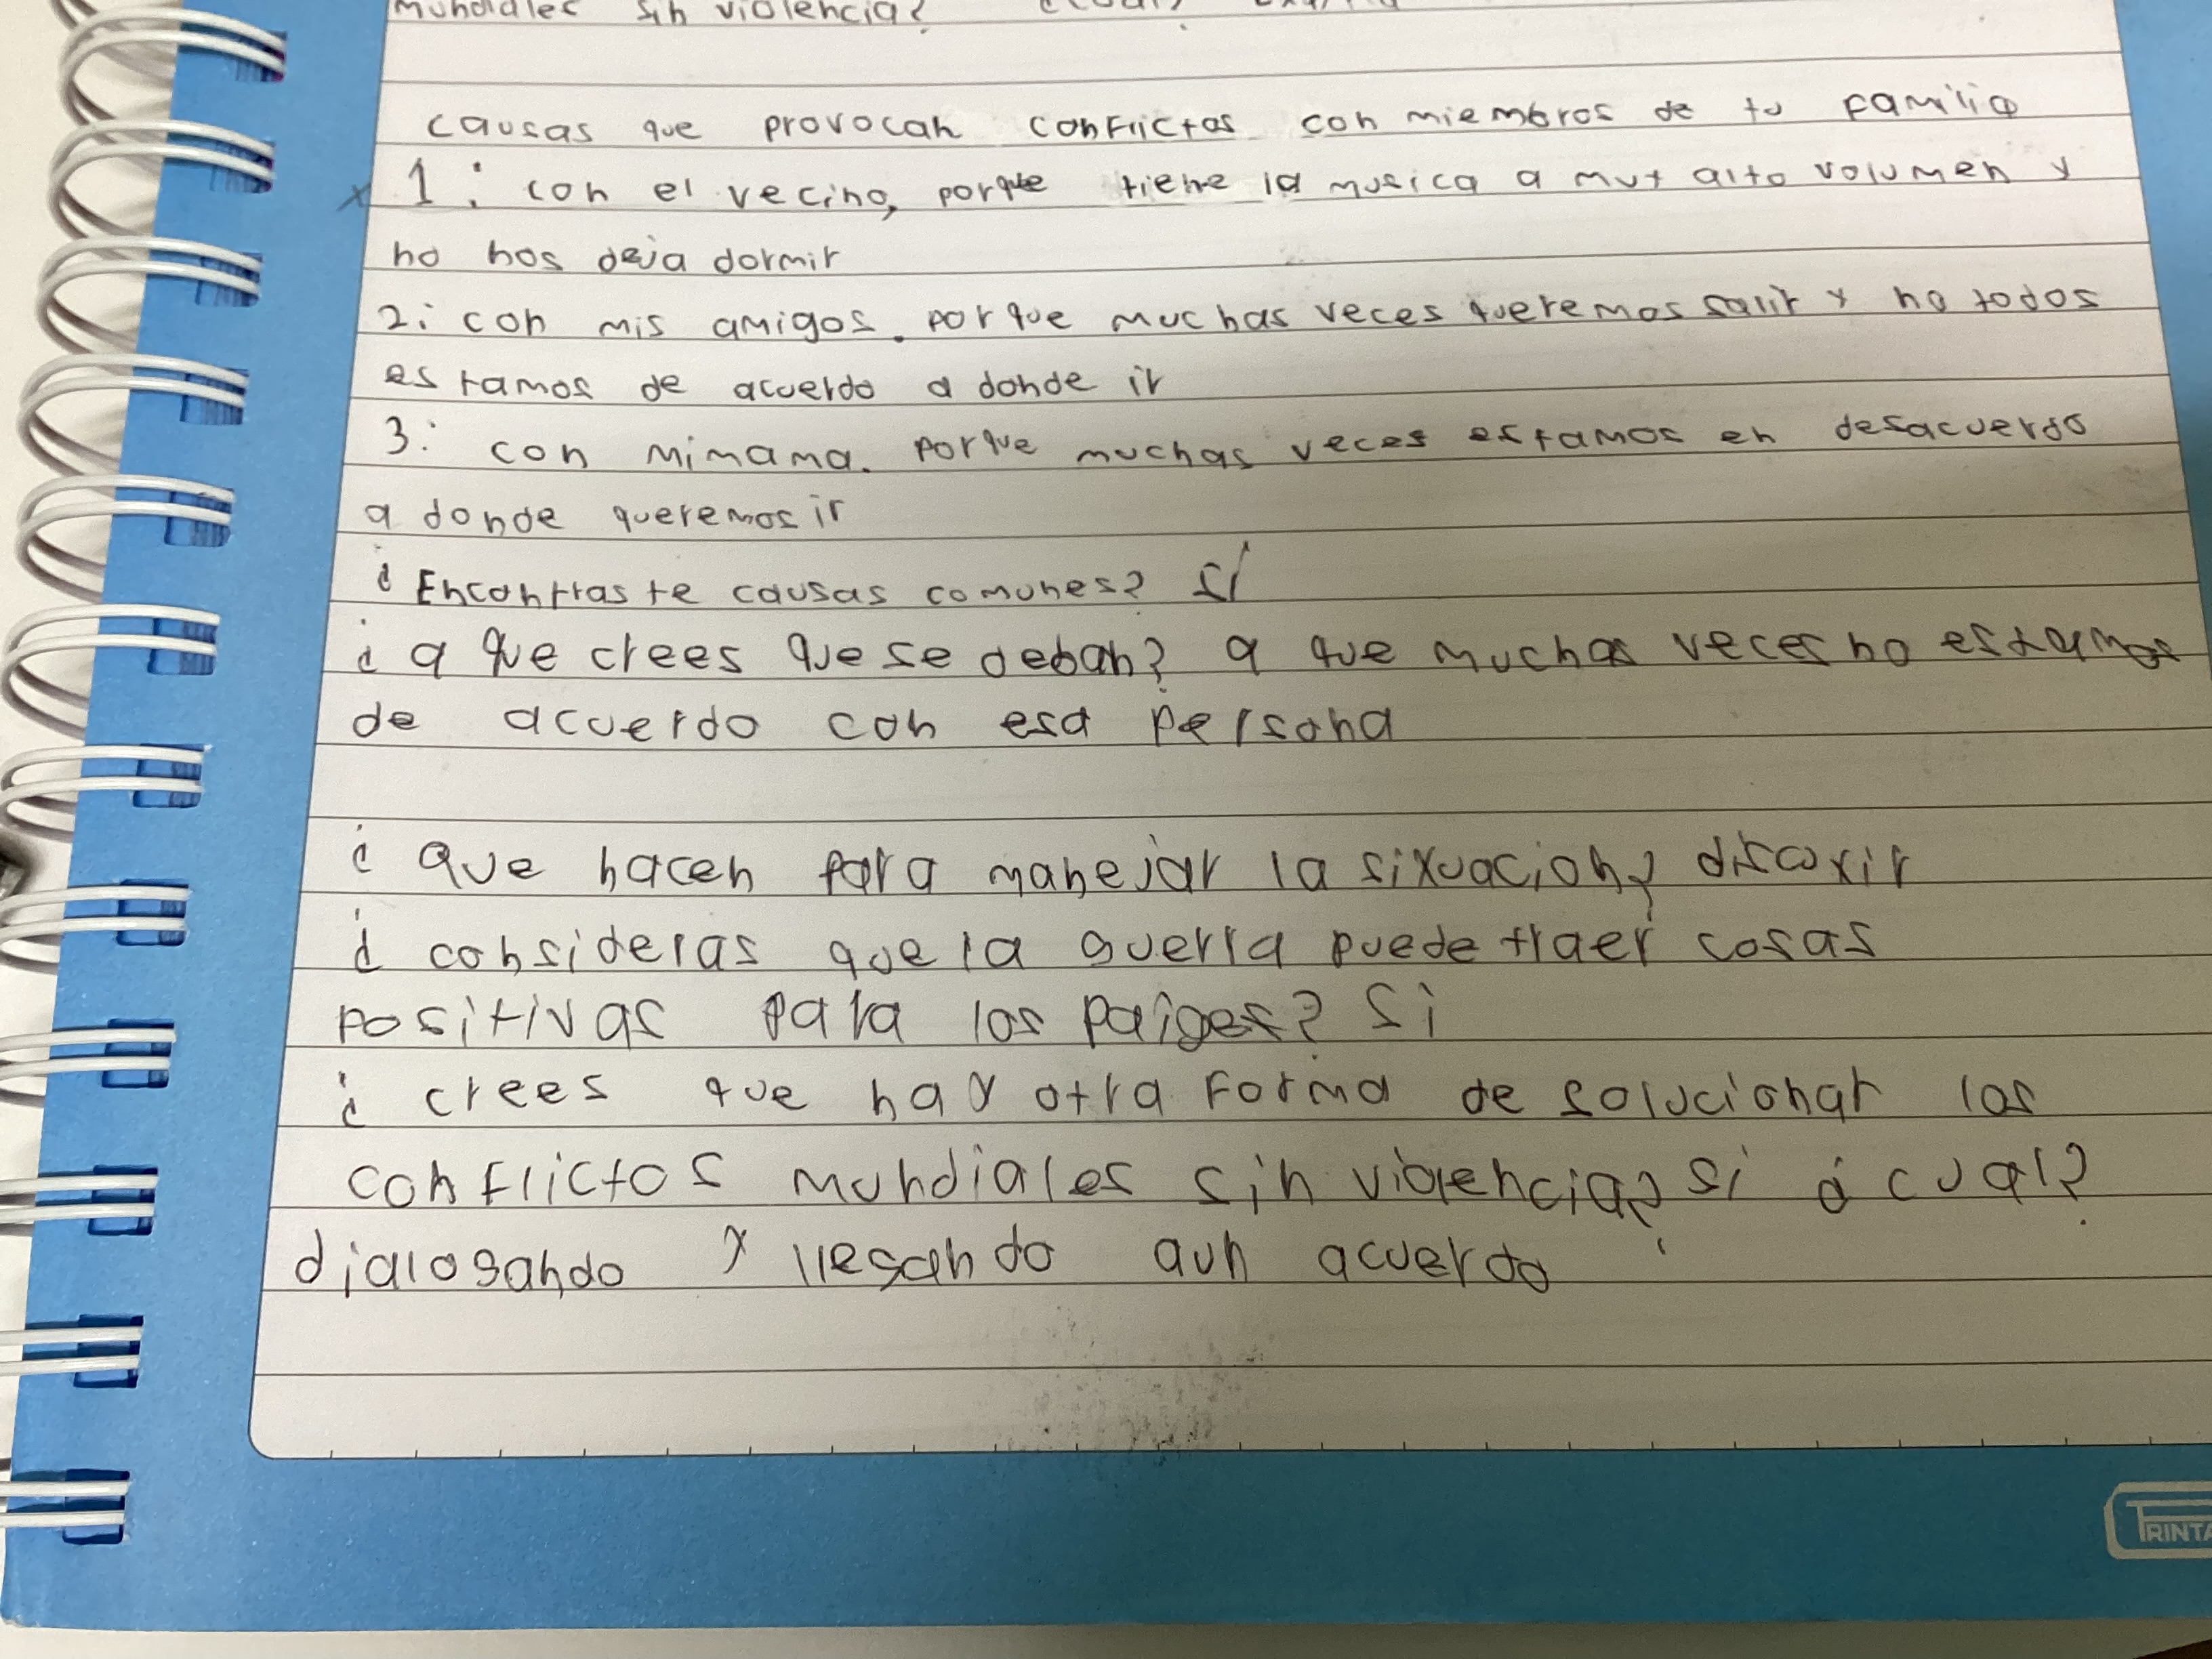 mundiales sin violencia?
causas que provocan conflictos con miembros de tu familia
x 1: con el vecino, porque tiene la musica a muy alto volumen y
no nos deja dormir
2: con mis amigos. porque muchas veces queremos salir y no todos
estamos de acuerdo a donde ir
3: con mi mama. Porque muchas veces estamos en desacuerdo
a donde queremos ir
¿Encontraste causas comunes? Sí
¿a que crees que se deban? a que muchas veces no estamos
de acuerdo con esa persona
¿que hacen para manejar la situacion?
¿consideras que la guerra puede traer cosas
positivas para los paises? Si
¿crees que hay otra forma de solucionar los
conflictos mundiales sin violencia? si ¿cual?
dialogando y llegando aun acuerdo
PRINTA